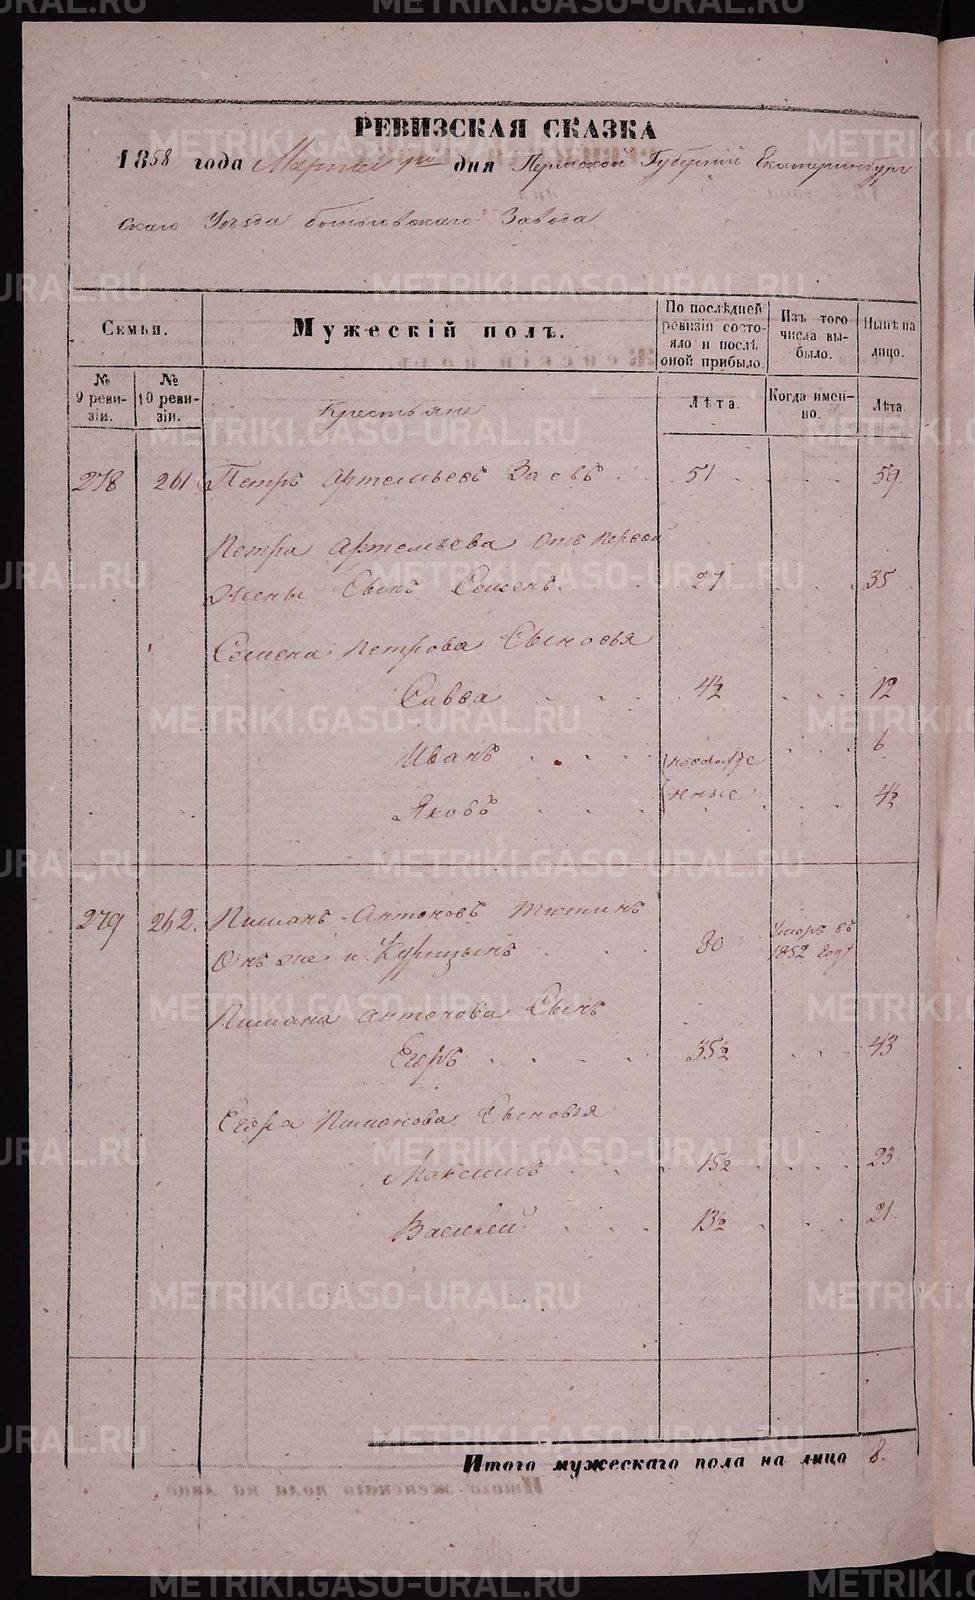 РЕВИЗСКАЯ СКАЗКА
1858 года Марта дня Пермской Губерніи Екатеринбург
скаго Уѣзда Завода
Семьи.
Мужескій полъ.
По послѣдней ревизіи состояло и послѣ оной прибыло.
Изъ того числа выбыло.
Нынѣ на лицо.
№ 9 ревизіи.
№ 10 ревизіи.
Лѣта.
Когда именно.
Лѣта.
Крестьяне
278 261 Петръ Артемьевъ Заевъ 51 59
Петра Артемьева отъ первой
жены Сынъ Семенъ. 27 35
Семена Петрова Сыновья
Савва 4½ 12
Иванъ новорожде 6
Яковъ нные 4½
279 262. Пиманъ Антоновъ Тютинъ
Онъ же и Курицынъ 80 Умеръ въ 1852 году
Пимана Антонова Сынъ
Егоръ 35½ 43
Егора Пиманова Сыновья
Максимъ 15½ 23
Василей 13½ 21
Итого мужескаго пола на лицо 8.
METRIKI.GASO-URAL.RU